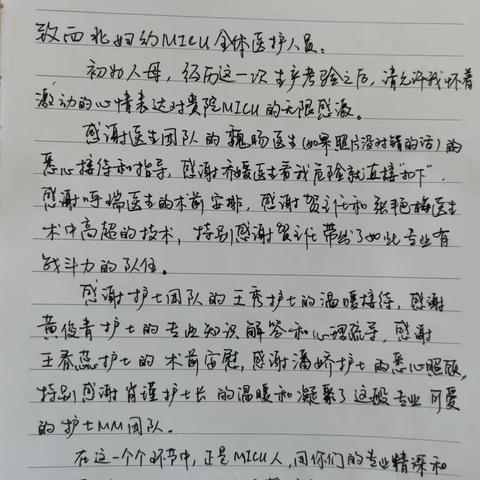 致西北妇幼MICU全体医护人员:
初为人母,经历这一次生产考验之后,请允许我怀着
激动的心情表达对贵院MICU的无限感激。
感谢医生团队的魏旸医生(如果照片没对错的话)的
悉心接待和指导,感谢乔媛医生看我危险就直接“扣下”,
感谢呼瑞医生的术前安排,感谢贺主任和张艳梅医生
术中高超的技术,特别感谢贺主任带出了如此专业有
战斗力的队伍。
感谢护士团队的王秀护士的温暖接待,感谢
黄俊青护士的专业知识解答和心理疏导,感谢
王春蕊护士的术前安慰,感谢潘娇护士的悉心照顾,
特别感谢肖谨护士长的温暖和凝聚了这般专业可爱
的护士MM团队。
在这一个个环节中,正是MICU人,用你们的专业精深和